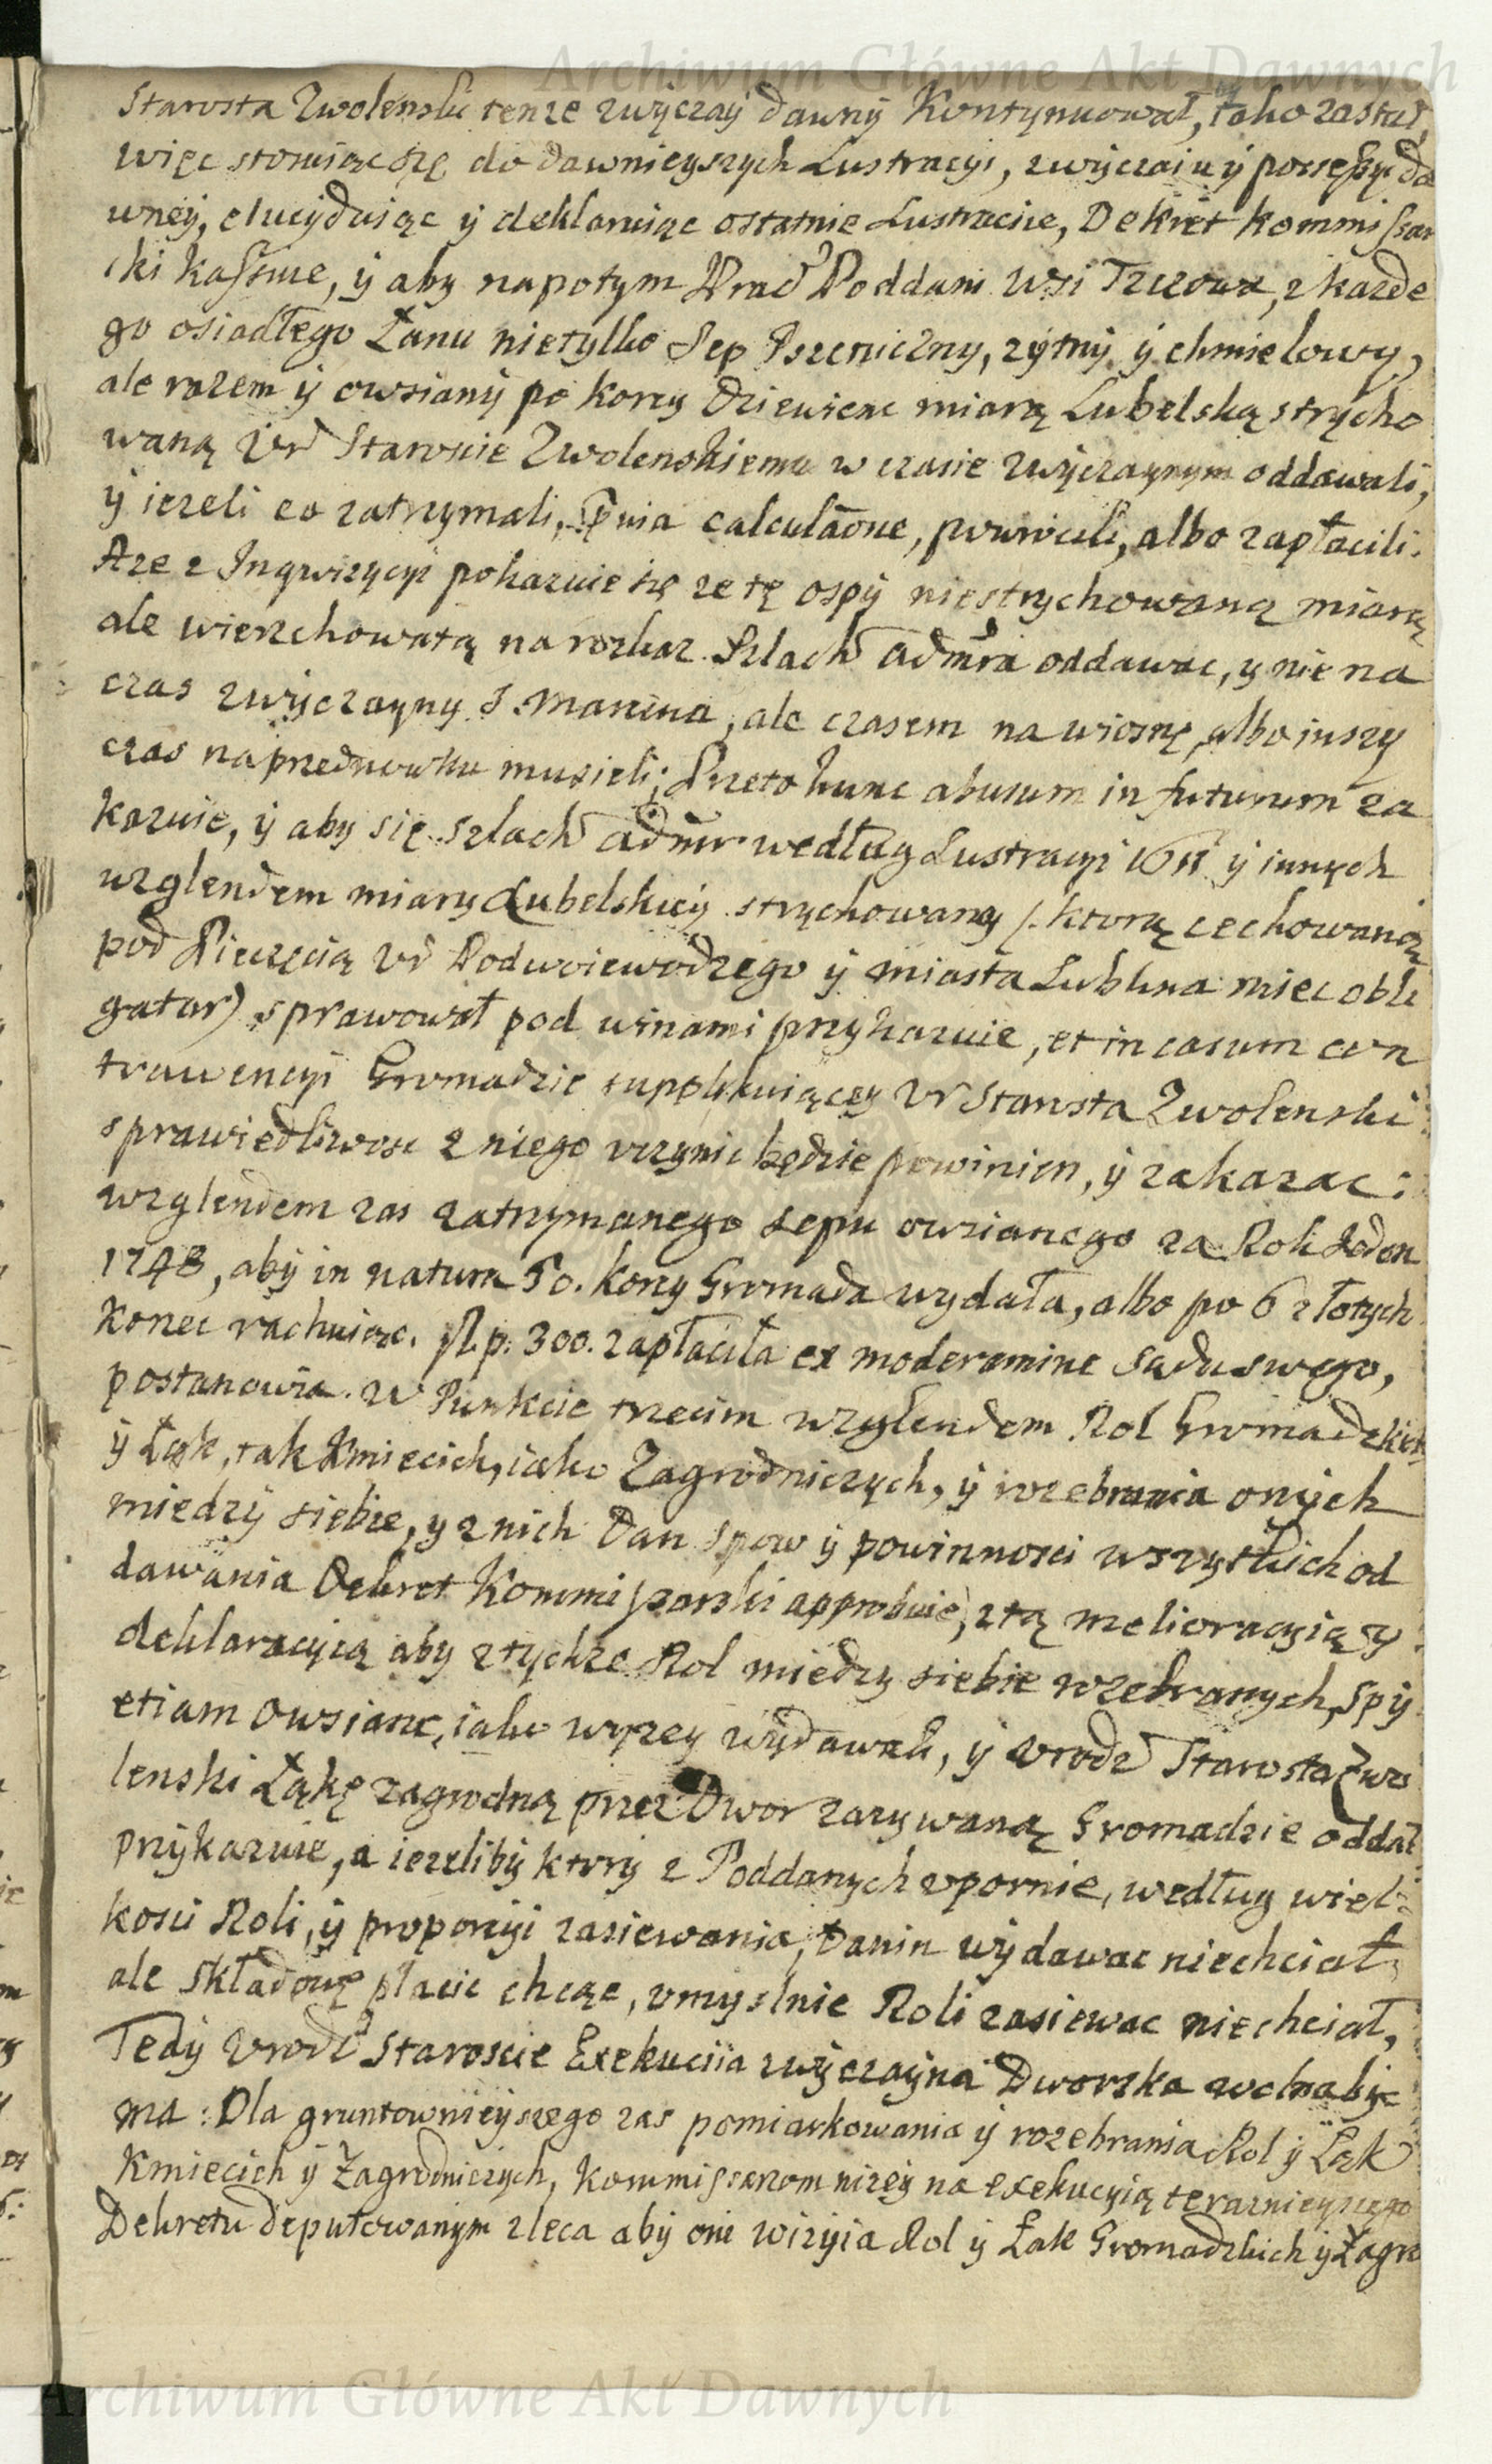 Archiwum Główne Akt Dawnych
Starosta Zwolenski tenze zwyczaÿ dawnÿ Kontynuował, iako zastał,
więc stosuiąc się do dawnieyszych Lustracyi, zwÿczaiu ÿ possessyi da
wneÿ, elucÿduiąc ÿ deklaruiąc ostatnie Lustracÿie, Dekret Kommissar
ski kassuie, ÿ aby napotym Prac Poddani Wsi Tczowa, z kazde
go osiadłego Łanu nietylko Sep Pszenicznÿ, zÿtnÿ ÿ chmielowy,
ale razem ÿ owsianÿ po korcy Dziewienc miarą Lubelską strycho
waną Ur Staroscie Zwolenskiemu w czasie zwÿczaynym oddawali,
ÿ iezeli co zatrzymali, pvia calculaone, powrocili, albo zapłacili.
Aze z Inqwizycyi pokazuie się ze tę ospÿ niestrychowaną miarą
ale wierzchowatą na rozkaz Szlach Admra oddawac, y nie na
czas zwÿczayny S. Marcina, ale czasem na wiosnę, albo inszy
czas na przednowku musieli; Przeto hunc abusum in futurum za
kazuie, ÿ aby się szlach Admr według Lustracyi 1611 ÿ innych
wzglendem miary Lubelskieÿ strychowaney /: ktorą cechowaną
pod Pieczęcią Ur Podwoiewodzego ÿ miasta Lublina miec obli
gatur) sprawował pod winami przykazuie, et in casum con
trawencyi Gromadzie supplikuiącey Ur Starosta Zwolenski
sprawiedliwosc z niego uczynic będzie powinien, ÿ zakazac:
wzglendem zas zatrzymanego Sepu owsianego za Rok Jeden
1748, abÿ in natura 50. korcy Gromada wydała, albo po 6 złotych
Korzec rachuiąc. fl. p. 300. zapłaciła ex moderamine sadu swego,
postanowia. W Punkcie trzecim wzglendem Rol Gromadzkich
ÿ Łąk, tak Kmiecich, iako Zagrodniczych, ÿ rozebrania onÿch
miedzÿ siebie, y z nich Dan Spow ÿ powinnosci wszystkich od
dawania Dekret Kommissarski approbuie, z tą melioracyią y
deklaracyią aby z tychze Rol miedzy siebie rozebranych, Spÿ
etiam Owsiane, iako wyzey wÿdawali, ÿ Urodz Starosta Zwo
lenski Łąkę zagrodną przez Dwor zarywaną Gromadzie oddał
przÿkazuie, a iezelibÿ ktorÿ z Poddanych upornie, według wiel
kosci Roli, ÿ proporcÿi zasiewania, Danin wÿdawac niechciał,
ale składowę płacic chcąc, umyslnie Roli zasiewac niechciał,
Tedÿ Urodz Staroscie Exekucÿia zwÿczaÿna Dworska wolna bÿc
ma: Dla gruntownieÿszego zas pomiarkowania ÿ rozebrania Rol ÿ Łąk
Kmiecich ÿ Zagrodniczych, Kommissarzom nizeÿ na exekucyią teraznieyszego
Dekretu deputowanym zleca abÿ oni wizÿia Rol ÿ Łak Gromadzkich ÿ Zagro
Archiwum Główne Akt Dawnych